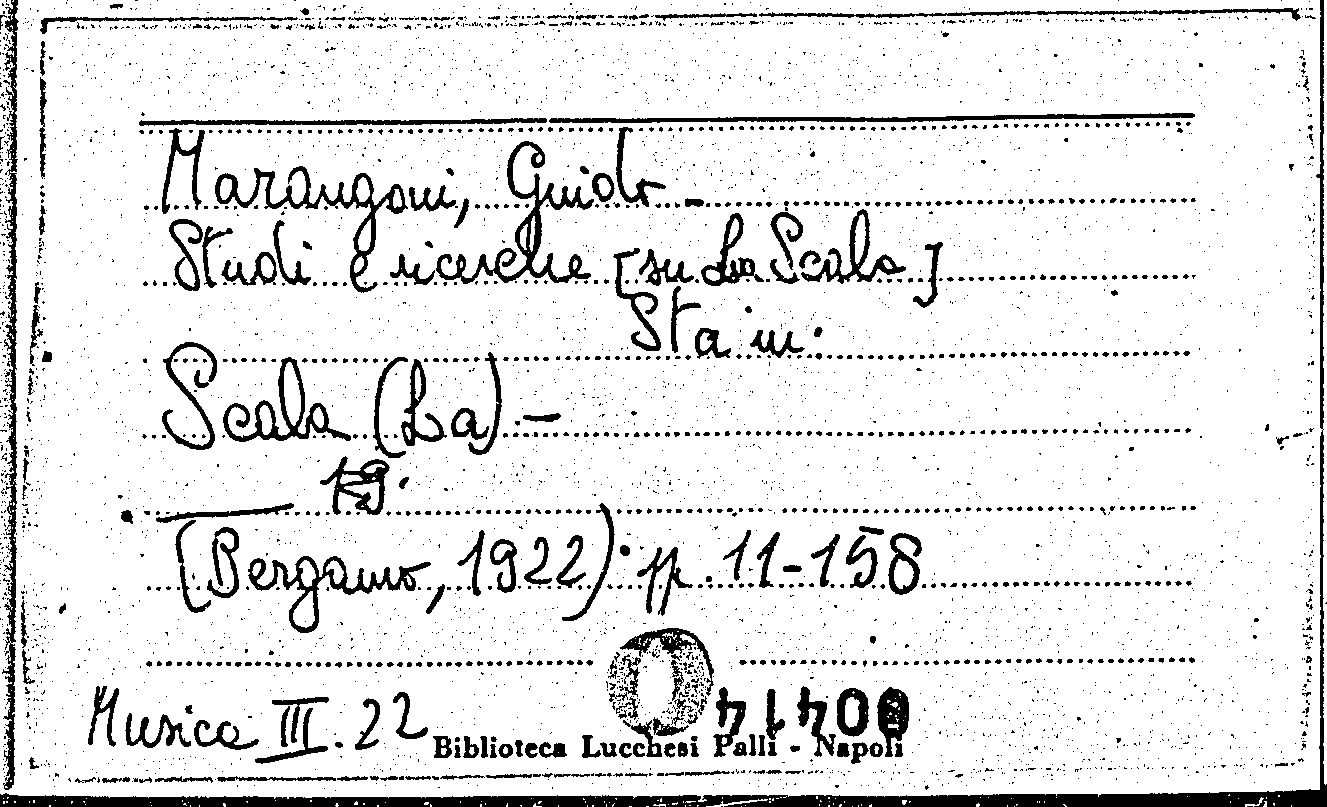 Marangoni, Guido -
Studi e ricerche [su La Scala]
Sta in:
Scala (La) -
(Bergamo, 1922). pp. 11-158
00414
Musica III. 22
Biblioteca Lucchesi Palli - Napoli